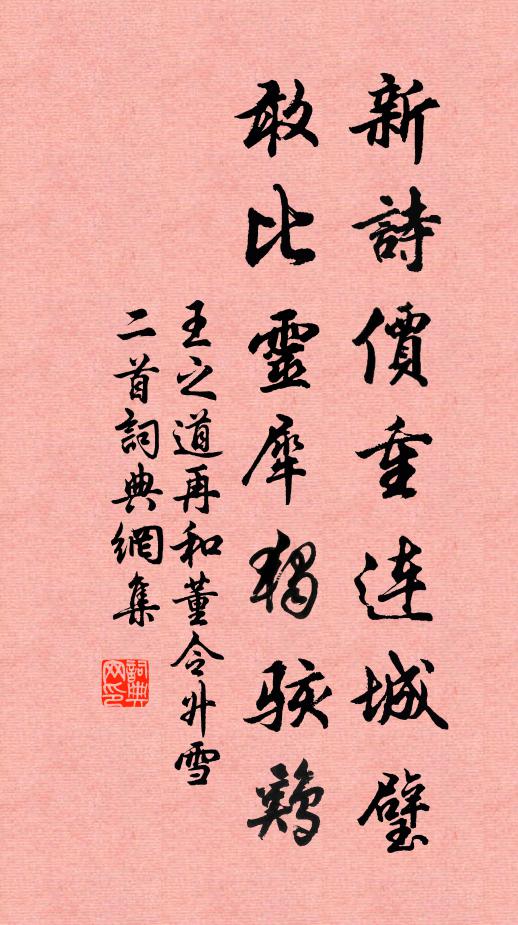 新詩價重連城璧
敢比靈犀獨駭鷄
王之道再和董令升雪
二首詞典網集
詞典网印